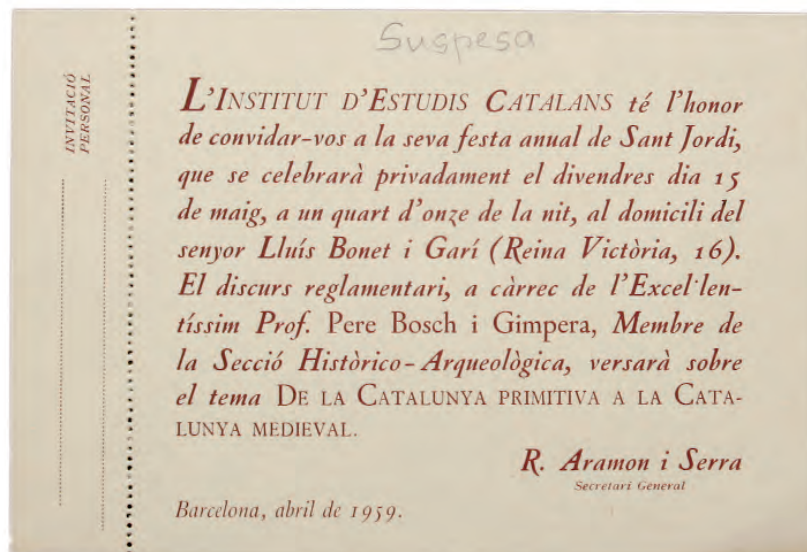 Suspesa
INVITACIÓ
PERSONAL
L'INSTITUT D'ESTUDIS CATALANS té l'honor
de convidar-vos a la seva festa anual de Sant Jordi,
que se celebrarà privadament el divendres dia 15
de maig, a un quart d'onze de la nit, al domicili del
senyor Lluís Bonet i Garí (Reina Victòria, 16).
El discurs reglamentari, a càrrec de l'Excel·len-
tíssim Prof. Pere Bosch i Gimpera, Membre de
la Secció Històrico-Arqueològica, versarà sobre
el tema DE LA CATALUNYA PRIMITIVA A LA CATA-
LUNYA MEDIEVAL.
R. Aramon i Serra
Secretari General
Barcelona, abril de 1959.